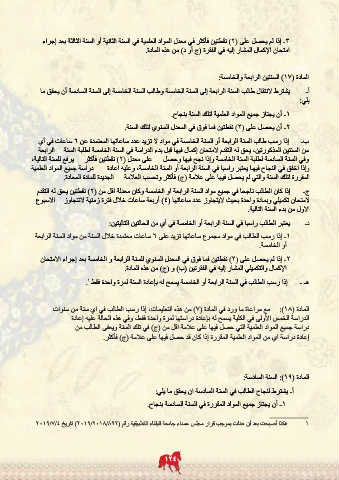 ٣- إذا لم يحصل على (٢) نقطتين فأكثر في معدل المواد العلمية في السنة الثانية أو السنة الثالثة بعد إجراء
امتحان الإكمال المشار إليه في الفقرة (ج أو د) من هذه المادة.
المادة (١٧) السنتين الرابعة والخامسة:
أ- يشترط لانتقال طالب السنة الرابعة إلى السنة الخامسة وطالب السنة الخامسة إلى السنة السادسة أن يحقق ما
يلي:
١- أن يجتاز جميع المواد العلمية لتلك السنة بنجاح.
٢- أن يحصل على (٢) نقطتين فما فوق في المعدل السنوي لتلك السنة.
ب- إذا رسب طالب السنة الرابعة أو السنة الخامسة في مواد لا تزيد عدد ساعاتها المعتمدة عن ٦ ساعات في أي
من السنتين المذكورتين، يحق له التقدم لامتحان إكمال فيها قبل بدء الدراسة في السنة الخامسة لطلبة السنة الرابعة
وفي السنة السادسة لطلبة السنة الخامسة وإذا نجح فيها وحصل على معدل (٢) نقطتين فأكثر يرفع للسنة التالية،
وإذا أخفق في النجاح فيها يعتبر راسباً في السنة الرابعة أو السنة الخامسة، وعليه إعادة دراسة جميع المواد العلمية
المقررة لتلك السنة والتي لم يحصل فيها على علامة (ج) فأكثر وتحسب العلامة الجديدة للمادة المعادة.
ج- إذا كان الطالب ناجحاً في جميع مواد السنة الرابعة أو الخامسة وكان معدله أقل من (٢) نقطتين يحق له التقدم
لامتحان تكميلي وبمادة واحدة بحيث لايتجاوز عدد ساعاتها (٤) أربعة ساعات خلال فترة زمنية لاتتجاوز الاسبوع
الاول من بدء السنة التالية.
د- يعتبر الطالب راسباً في السنة الرابعة أو الخامسة في أي من الحالتين التاليتين:
١- إذا رسب الطالب في مواد مجموع ساعاتها تزيد على ٦ ساعات معتمدة خلال السنة من مواد السنة الرابعة
أو الخامسة.
٢- إذا لم يحصل على (٢) نقطتين فما فوق في المعدل السنوي للسنة الرابعة و الخامسة بعد إجراء الامتحان
الإكمال والتكميلي المشار إليه في الفقرتين (ب) و (ج) من هذه المادة.
هـ - إذا رسب الطالب في السنة الرابعة أو الخامسة يسمح له بإعادة السنة لمرة واحدة فقط ١.
المادة (١٨): مع مراعاة ما ورد في المادة (٧) من هذه التعليمات، إذا رسب الطالب في أي سنة من سنوات
الدراسة الخمس الأولى في الكلية يسمح له بإعادة دراستها لمرة واحدة فقط، وفي هذه الحالة عليه إعادة
دراسة جميع المواد العلمية التي حصل فيها على علامة أقل من (ج) في تلك السنة ويعفى الطالب من
إعادة دراسة أي من المواد العلمية المقررة إذا كان قد حصل فيها على علامة (ج) فأكثر.
المادة (١٩): السنة السادسة:
أ- يشترط لنجاح الطالب في السنة السادسة أن يحقق ما يلي:
١- أن يجتاز جميع المواد المقررة في السنة السادسة بنجاح.
١ هكذا أصبحت بعد أن عدلت بموجب قرار مجلس عمداء جامعة البلقاء التطبيقية رقم تاريخ ٢٠١٩/٧/٤
١٢٤